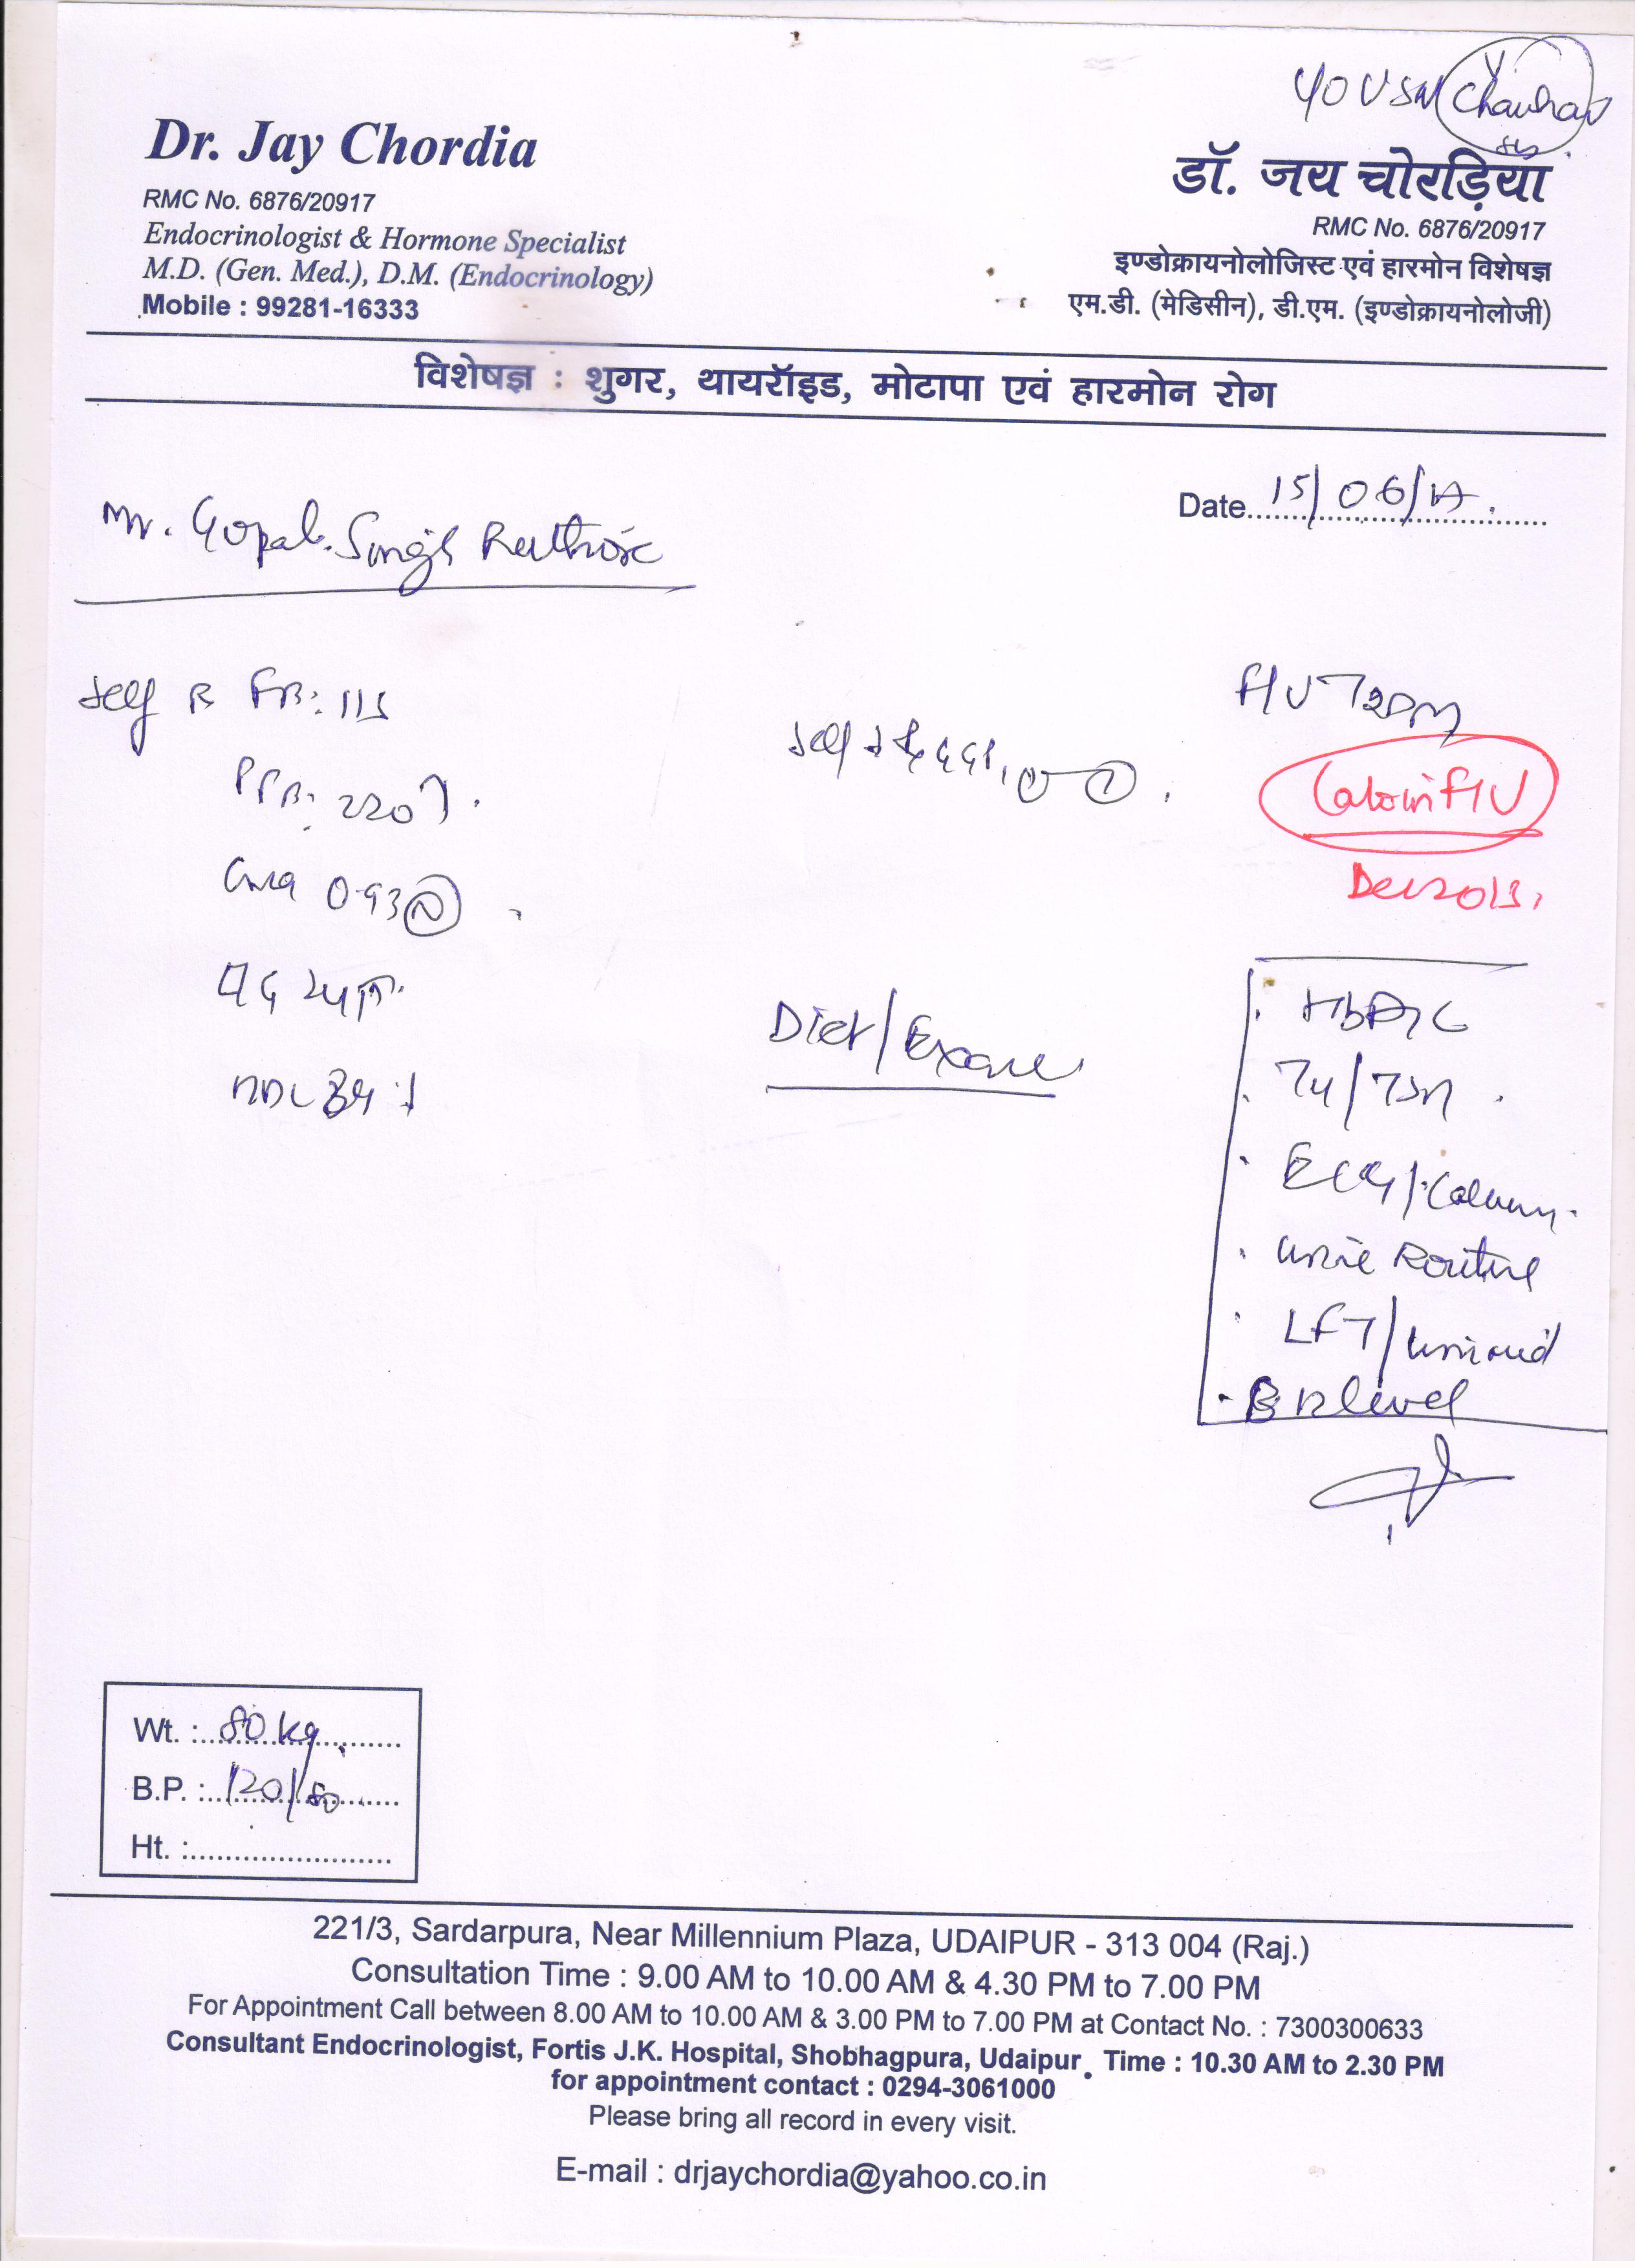 Chauhan
Dr. Jay Chordia
RMC No. 6876/20917
Endocrinologist & Hormone Specialist
M.D. (Gen. Med.), D.M. (Endocrinology)
Mobile : 99281-16333
डॉ. जय चोरड़िया
RMC No. 6876/20917
इण्डोक्रायनोलोजिस्ट एवं हारमोन विशेषज्ञ
एम.डी. (मेडिसीन), डी.एम. (इण्डोक्रायनोलोजी)
विशेषज्ञ : शुगर, थायरॉइड, मोटापा एवं हारमोन रोग
Date 15/06/17.
Mr. Gopal Singh Rathore
Self R FB: 115
PPB: 220
0.93 N
TG
HDL 34 ↓
Diet/Exercise
F/U T2DM
F/U
HbA1c
T4/TSH
ECG/
Urine Routine
LFT/Uric acid
B12 level
Wt. : 80 kg
B.P. : 120/80
Ht. :
221/3, Sardarpura, Near Millennium Plaza, UDAIPUR - 313 004 (Raj.)
Consultation Time : 9.00 AM to 10.00 AM & 4.30 PM to 7.00 PM
For Appointment Call between 8.00 AM to 10.00 AM & 3.00 PM to 7.00 PM at Contact No. : 7300300633
Consultant Endocrinologist, Fortis J.K. Hospital, Shobhagpura, Udaipur. Time : 10.30 AM to 2.30 PM
for appointment contact : 0294-3061000
Please bring all record in every visit.
E-mail : drjaychordia@yahoo.co.in